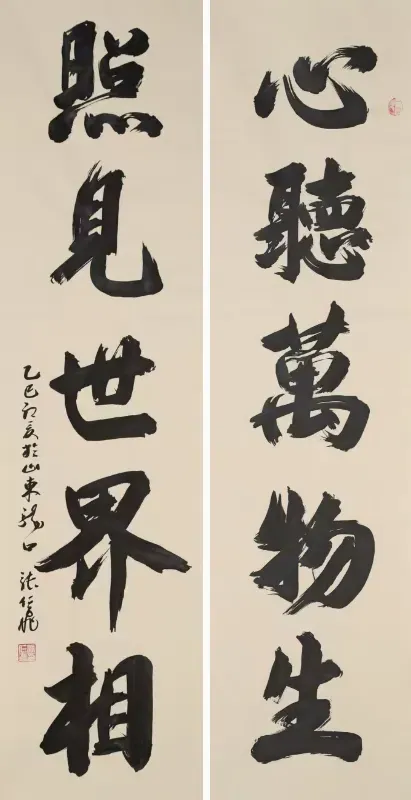 心聽萬物生
照見世界相
乙巳初夏於山東龍口 張仁